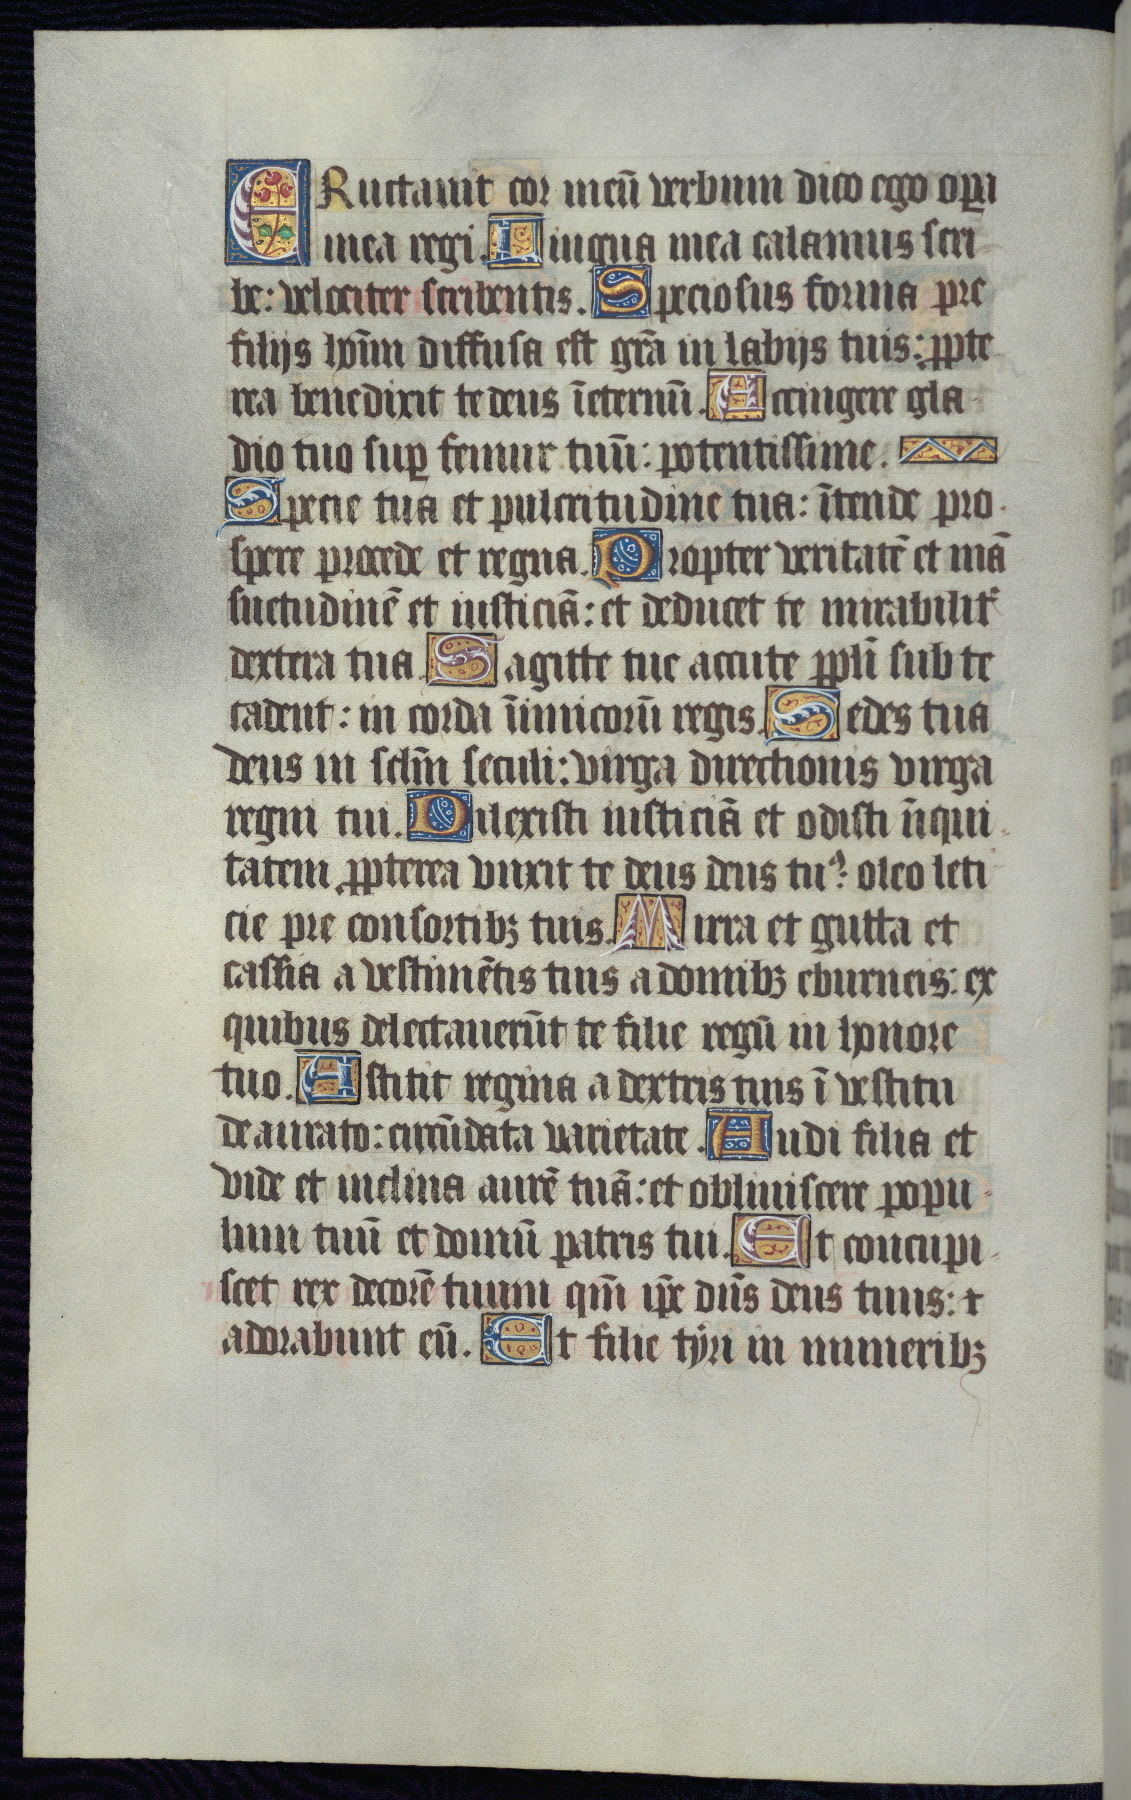 ERuctauit cor meū verbum dico ego oꝑa
mea regi. Lingua mea calamus scri
be: velociter scribentis. Speciosus forma pre
filijs hoīm diffusa est grā in labijs tuis: ꝓpte
rea benedixit te deus īeternū. Accingere gla
dio tuo suꝑ femur tuū: potentissime.
Specie tua et pulcritudine tua: ītende pro
spere procede et regna. Propter veritatē et mā
suetudinē et iusticiā: et deducet te mirabilit᷑
dextera tua. Sagitte tue accute ppl̄i sub te
cadent: in corda īimicorū regis. Sedes tua
deus in sclm̄ seculi: virga directionis virga
regni tui. Dilexisti iusticiā et odisti īiqui
tatem ꝓpterea vnxit te deus deus tuꝰ: oleo leti
cie pre consortibꝫ tuis. Mirra et gutta et
cassia a vestimētis tuis a domibꝫ eburneis: ex
quibus delectauerūt te filie regū in honore
tuo. Astitit regina a dextris tuis ī vestitu
deaurato: circūdata varietate. Audi filia et
vide et inclina aurē tuā: et obliuiscere popu
lum tuū et domū patris tui. Et concupi
scet rex decorē tuum qm̄ ip̄e dn̄s deus tuus: ⁊
adorabunt eū. Et filie tyri in muneribꝫ